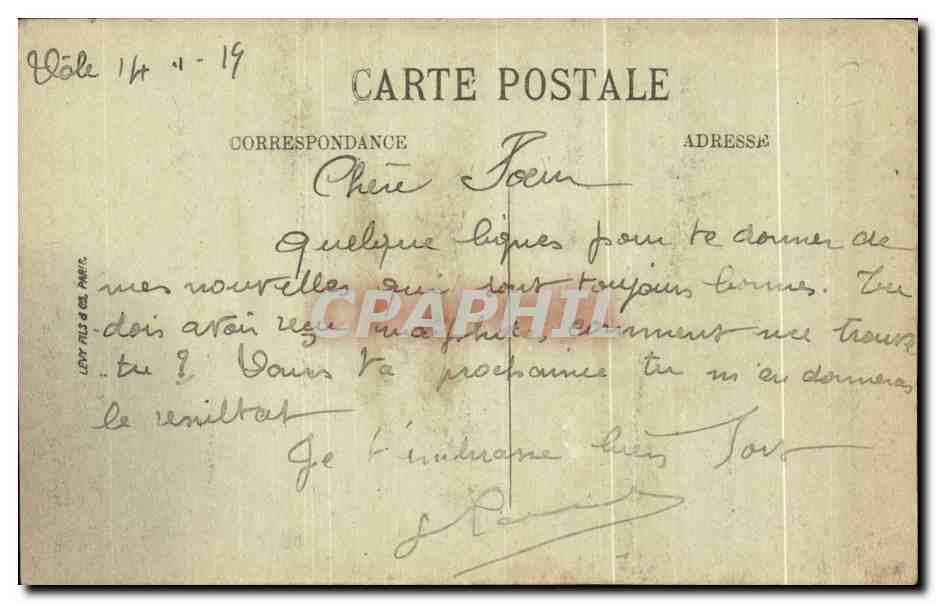 Dôle 14 - 11 - 19
CARTE POSTALE
CORRESPONDANCE
ADRESSE
Chère Sœur
Quelque lignes pour te donner de
mes nouvelles qui sont toujours bonnes. Tu
dois avoir reçu ma photo, comment me trouve
tu ? Dans ta prochaine tu m'en donneras
le resultat
Je t'embrasse bien fort
LEVY FILS & Cie, PARIS.
CPAPHIL